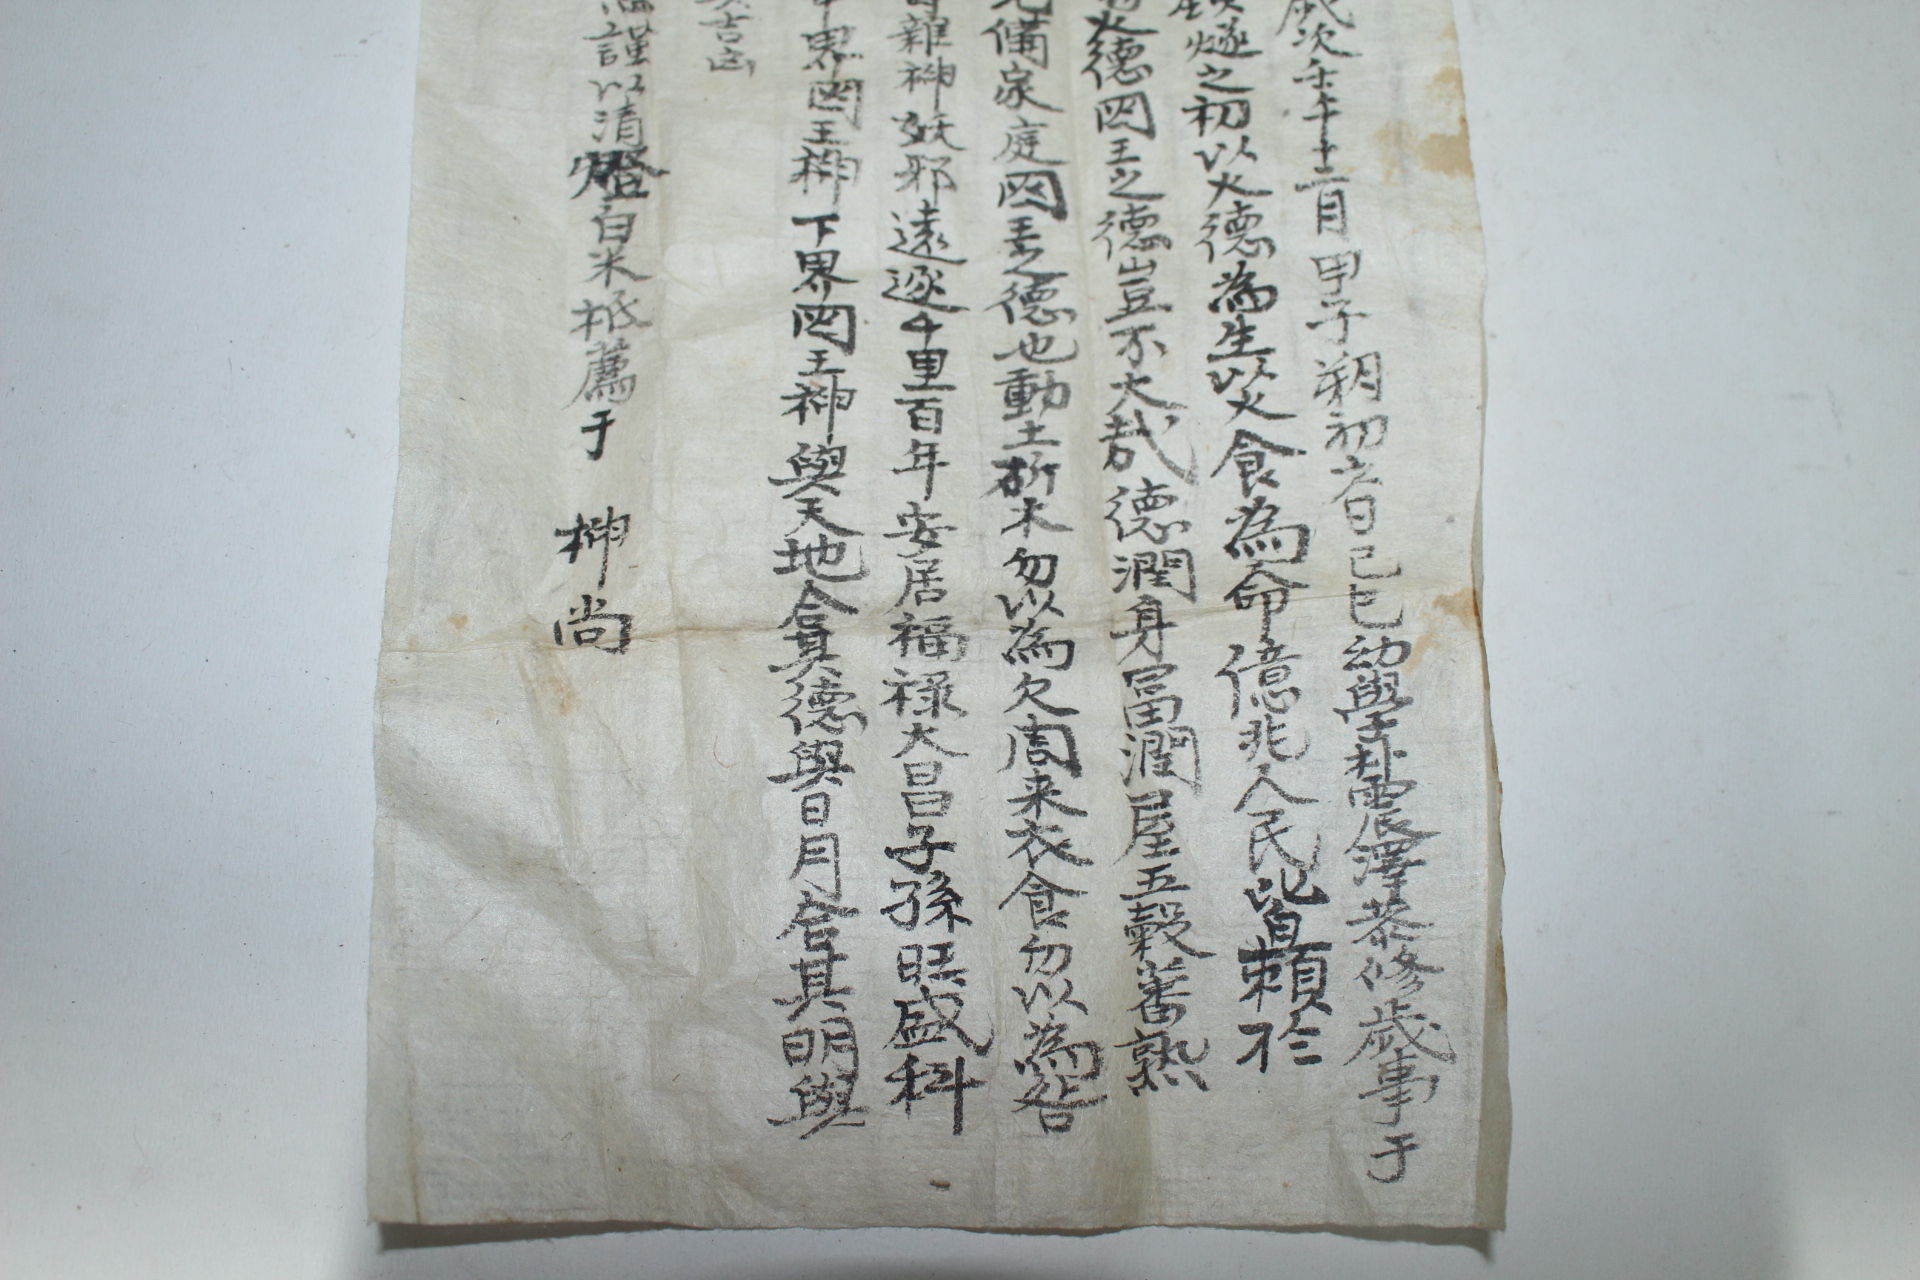 歲次壬午十二月甲子朔初六日己巳幼學朴震澤恭修歲事于
燧之初以火德為生以火食為命億兆人民皆賴於
火德罔王之德豈不大哉德潤身富潤屋五穀蕃熟
備家庭罔王之德也動土斫木勿以為欠周来衣食勿以為咎
雜神妖邪遠逐千里百年安居福祿大昌子孫旺盛科
界罔王神下界罔王神與天地合其德與日月合其明與
吉凶
謹以清燈白米祗薦于 神尚